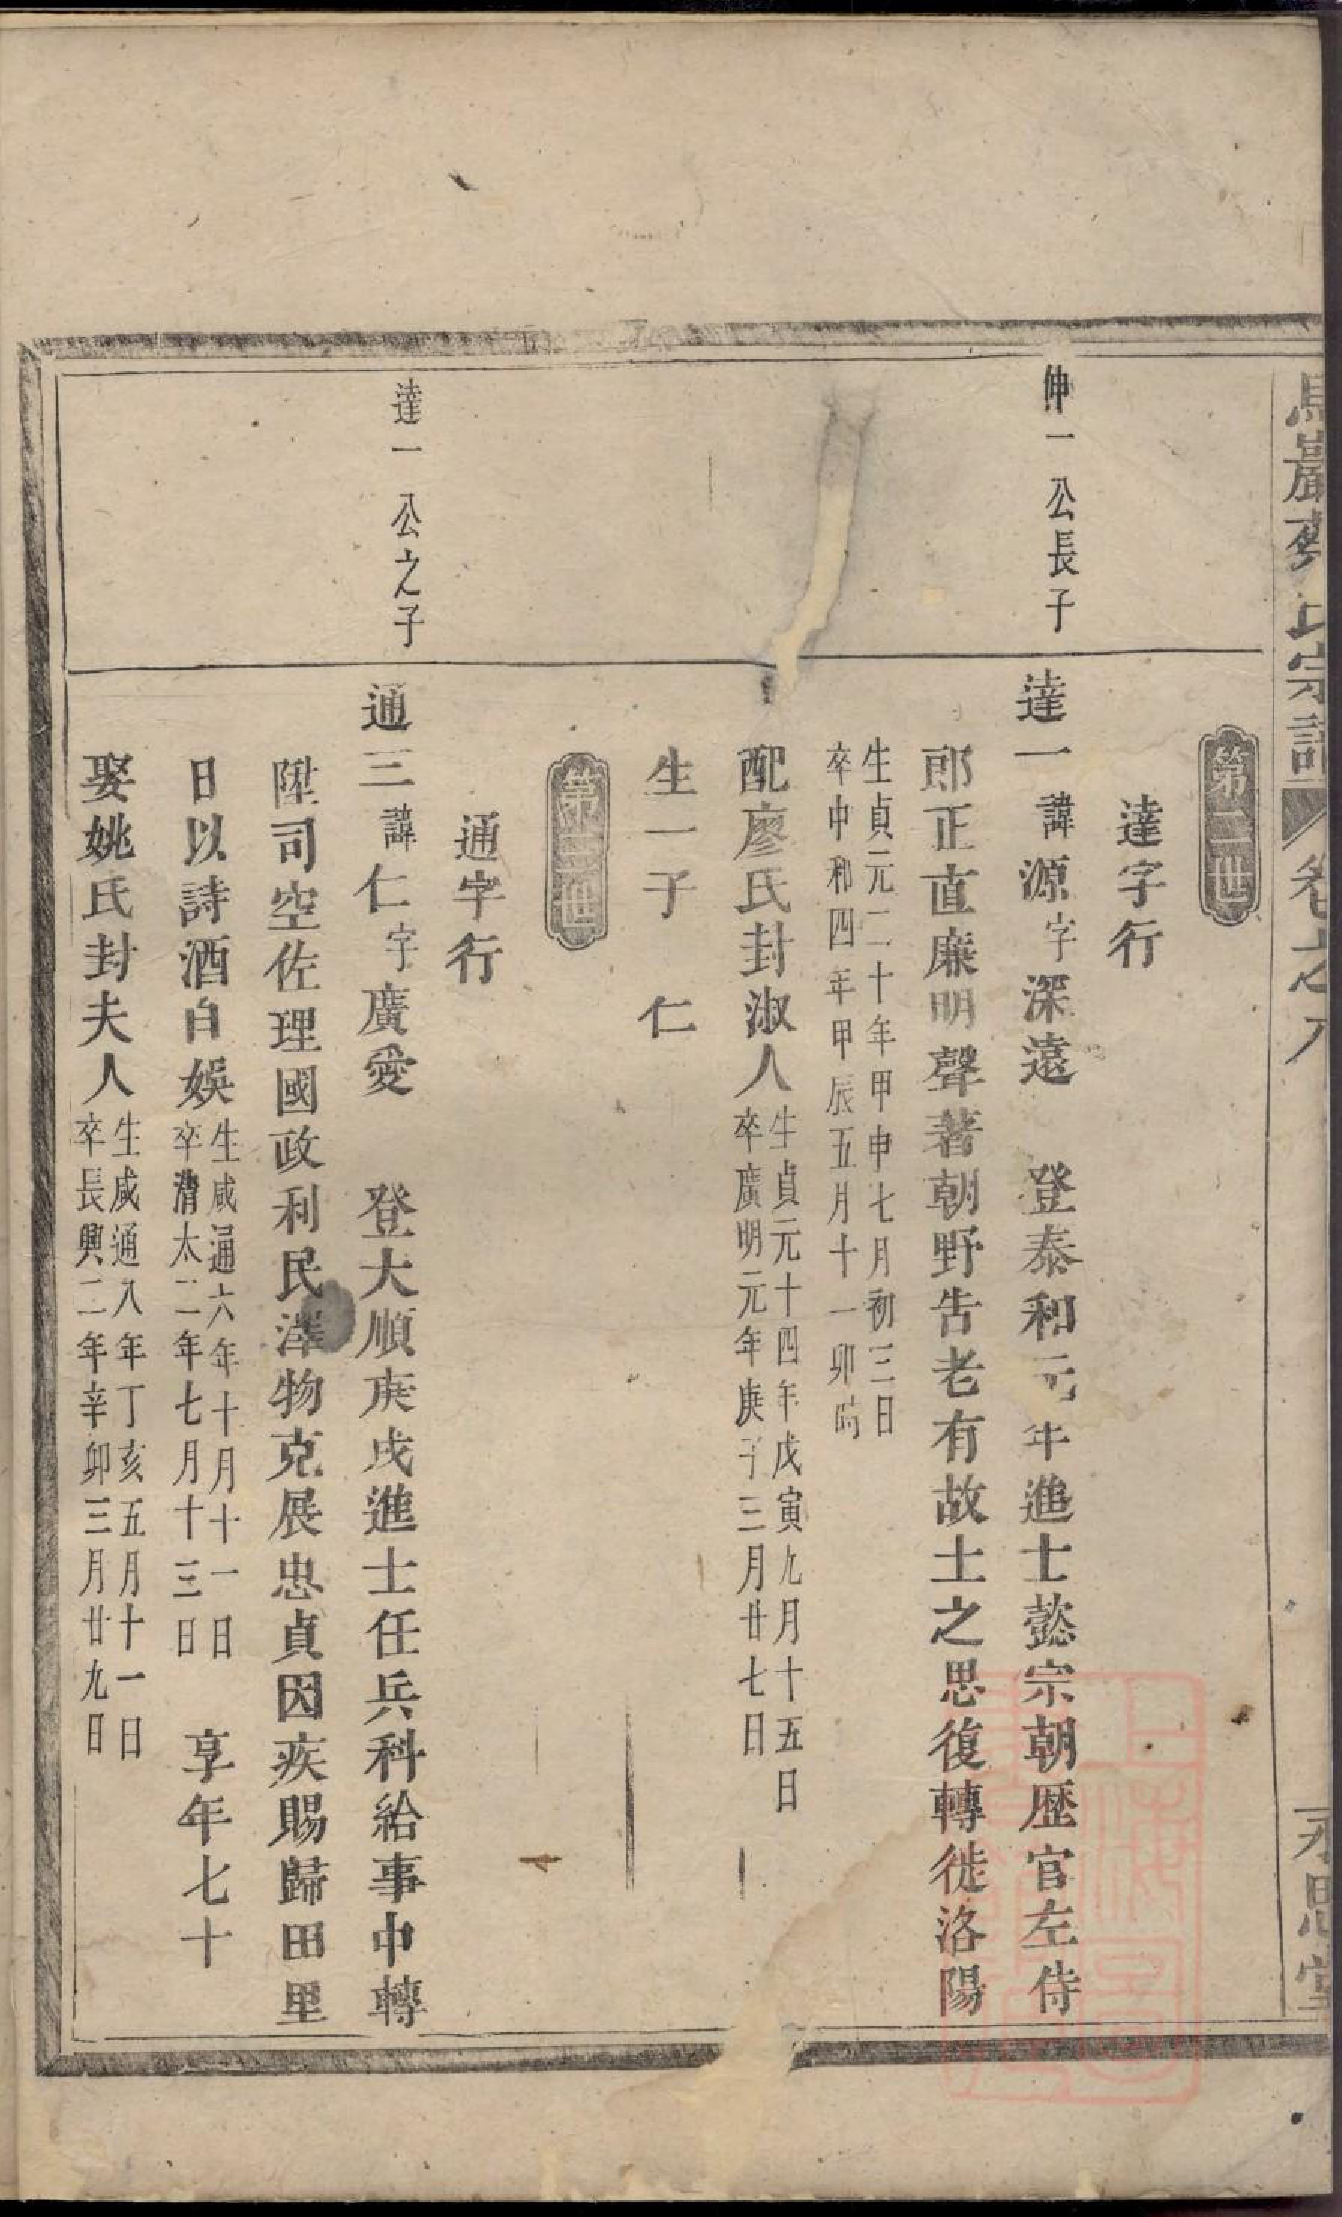 巖氏宗譜 卷之八 永思堂
第二世
達字行
伸一公長子
達一諱源字深遠 登泰和元年進士懿宗朝歷官左侍
郎正直廉明聲著朝野告老有故土之思復轉徙洛陽
生貞元二十年甲申七月初三日
卒中和四年甲辰五月十一卯時
配廖氏封淑人
生貞元十四年戊寅九月十五日
卒廣明元年庚子三月廿七日
生一子 仁
第三世
通字行
達一公之子
通三諱仁字廣愛 登大順庚戌進士任兵科給事中轉
陞司空佐理國政利民澤物克展忠貞因疾賜歸田里
日以詩酒自娛
生咸通六年十月十一日
卒清太二年七月十三日
享年七十
娶姚氏封夫人
生咸通八年丁亥五月十一日
卒長興二年辛卯三月廿九日